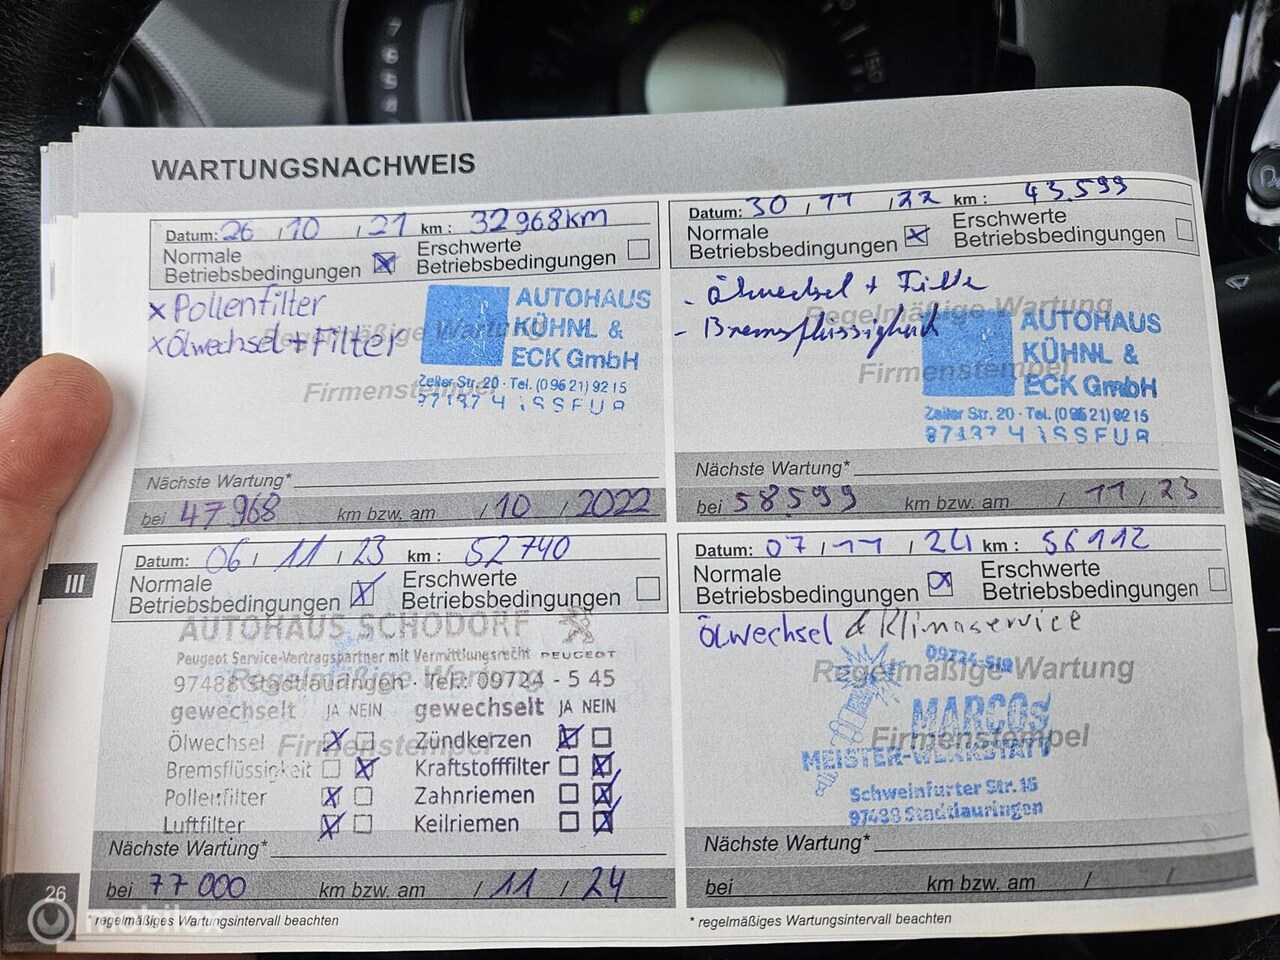 WARTUNGSNACHWEIS
Datum: 26 / 10 / 21 km: 32968km
Normale Betriebsbedingungen Erschwerte Betriebsbedingungen
x Pollenfilter
x Ölwechsel + Filter
Regelmäßige Wartung
Firmenstempel
AUTOHAUS
KÜHNL &
ECK GmbH
Zeiler Str. 20 · Tel. (09621) 9215
Nächste Wartung*
bei 47968 km bzw. am / 10 / 2022
Datum: 30 / 11 / 22 km: 43.599
Normale Betriebsbedingungen Erschwerte Betriebsbedingungen
- Ölwechsel + Filter
- Bremsflüssigkeit
Regelmäßige Wartung
Firmenstempel
AUTOHAUS
KÜHNL &
ECK GmbH
Zeiler Str. 20 · Tel. (09621) 9215
Nächste Wartung*
bei 58.599 km bzw. am / 11 / 23
III
Datum: 06 / 11 / 23 km: 52740
Normale Betriebsbedingungen Erschwerte Betriebsbedingungen
AUTOHAUS SCHODORF
Peugeot Service-Vertragspartner mit Vermittlungsrecht PEUGEOT
Regelmäßige Wartung
97488 Stadtlauringen · Tel.: 09724 - 5 45
gewechselt JA NEIN gewechselt JA NEIN
Firmenstempel
Ölwechsel Zündkerzen
Bremsflüssigkeit Kraftstofffilter
Pollenfilter Zahnriemen
Luftfilter Keilriemen
Nächste Wartung*
bei 77000 km bzw. am / 11 / 24
* regelmäßiges Wartungsintervall beachten
Datum: 07 / 11 / 24 km: 56112
Normale Betriebsbedingungen Erschwerte Betriebsbedingungen
Ölwechsel & Klimaservice
Regelmäßige Wartung
Firmenstempel
MARCOs
MEISTER-WERKSTATT
Schweinfurter Str. 16
97488 Stadtlauringen
Nächste Wartung*
bei km bzw. am / /
* regelmäßiges Wartungsintervall beachten
26
mobilox